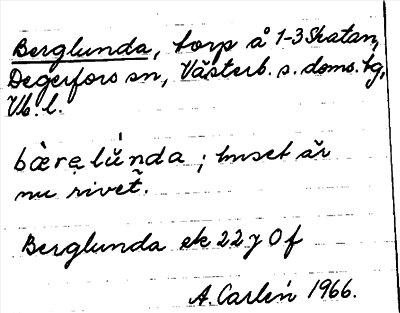 Berglunda, torp å 1-3 Skatan,
Degerfors sn, Västerb. s. doms. tg,
Vb. l.
bæ̀rạlǘnda; huset är
nu rivet.
Berglunda ek 22 7 0 f
A. Carlén 1966.